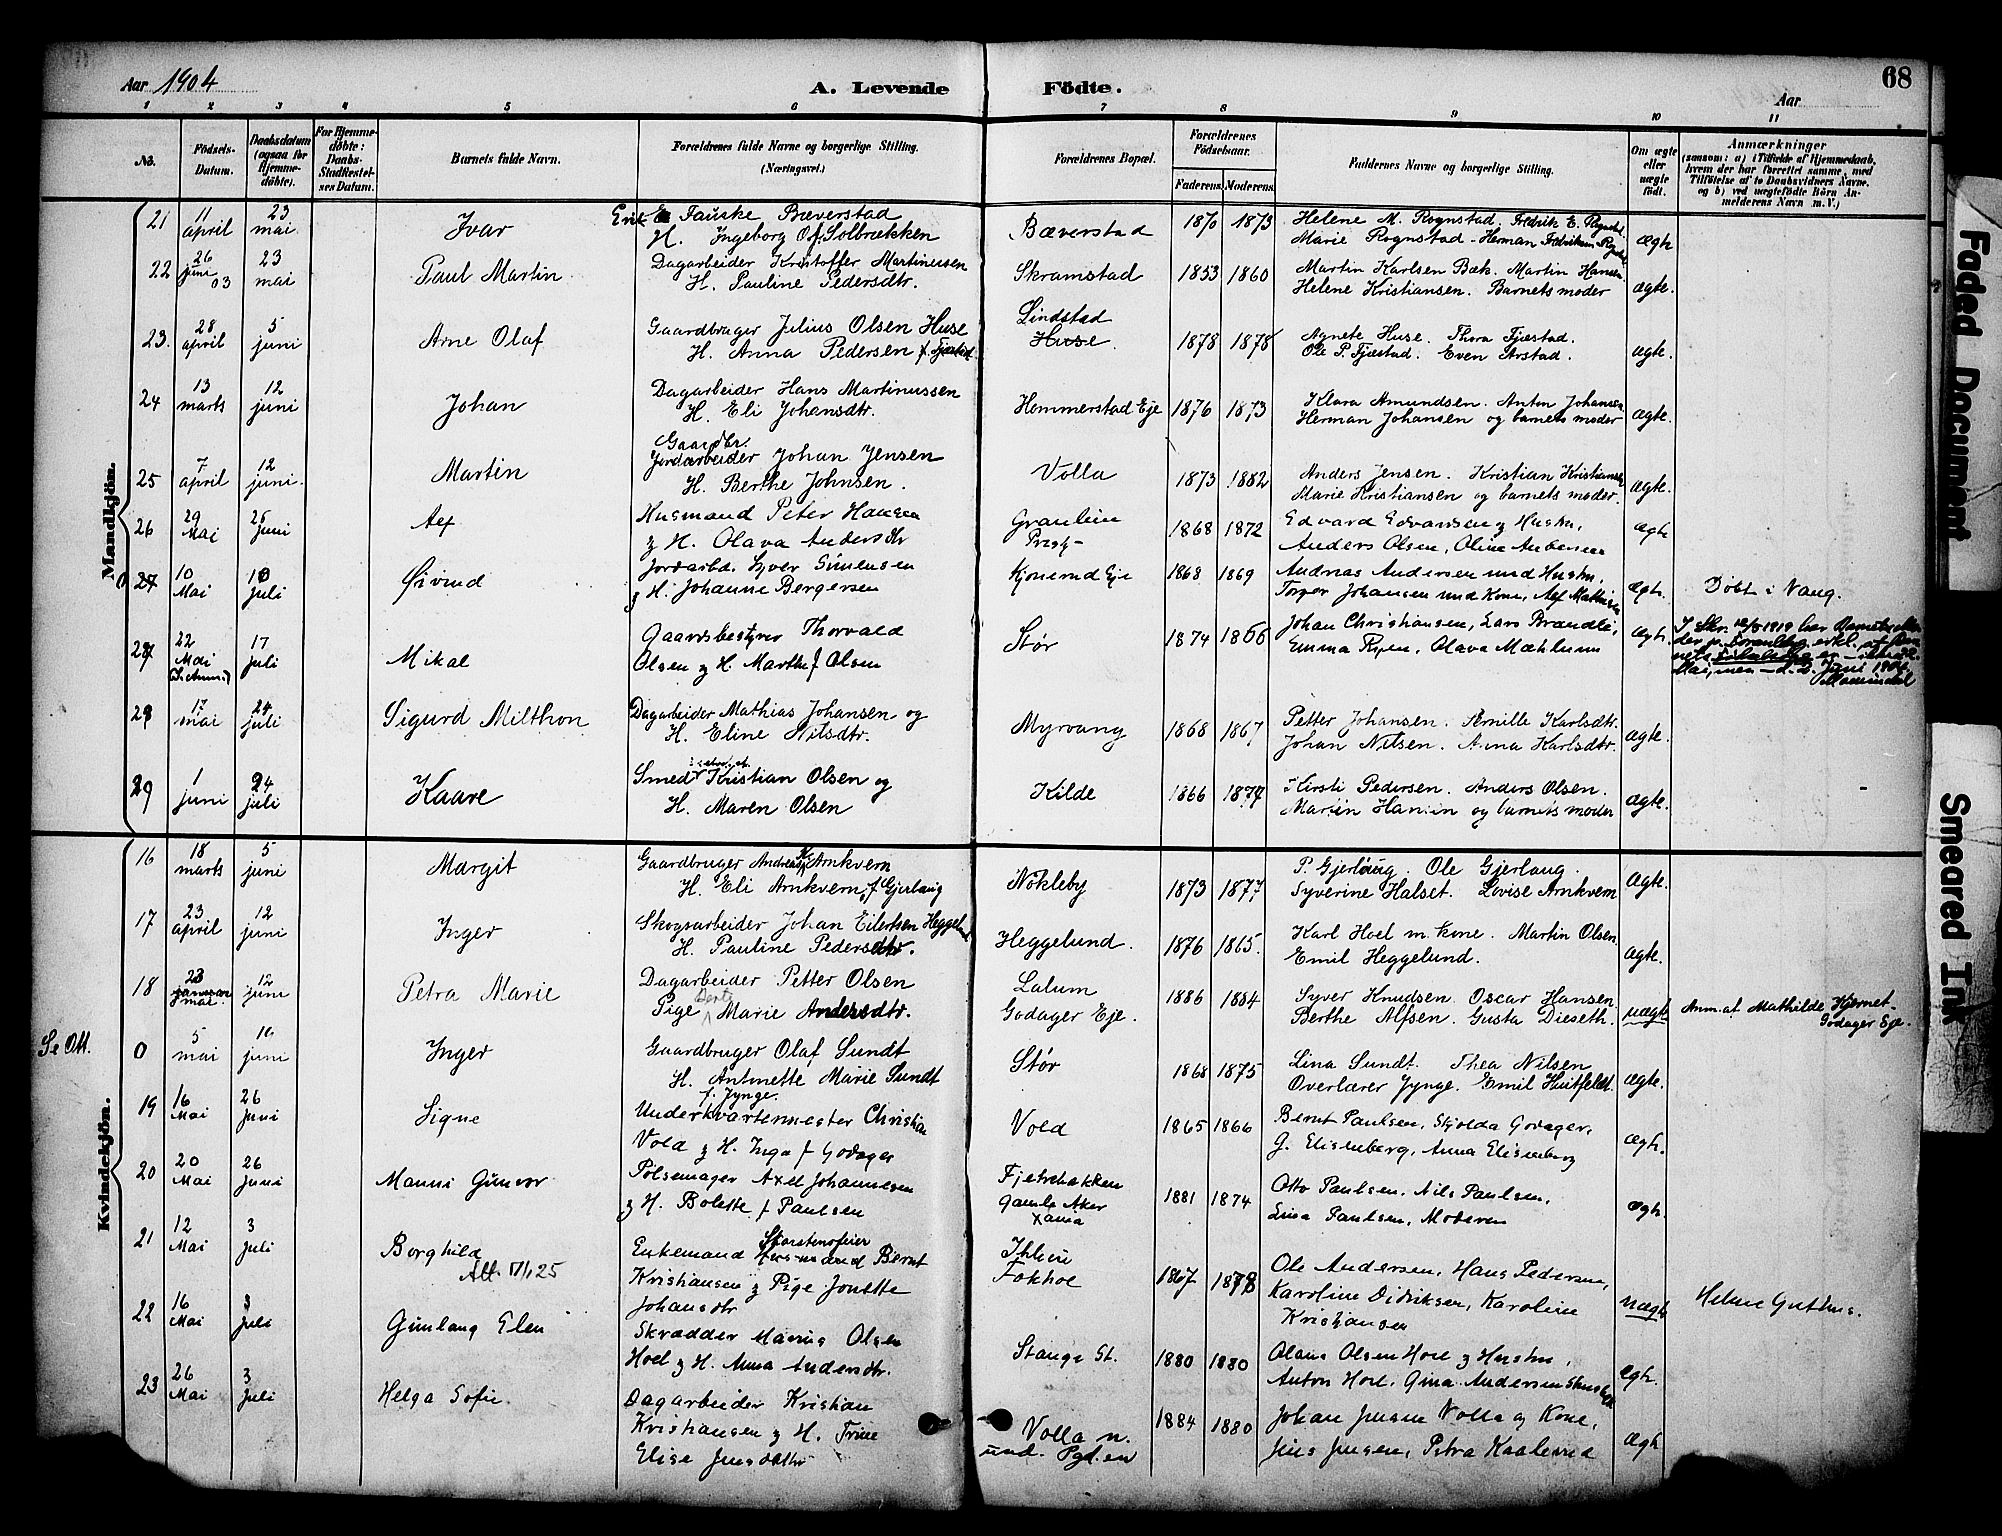 Aar 1904 A. Levende Födte. Aar 68
1 2 3 4 5 6 7 8 9 10 11
No. Födsels-Datum. Daabsdatum (ogsaa for Hjemme-döbte). For Hjemme-döbte: Daabs-Stadfæstel-ses Datum. Barnets fulde Navn. Forældrenes fulde Navne og borgerlige Stilling. (Næringsvei.) Forældrenes Bopæl. Forældrenes Födselsaar. Faderens. Moderens. Faddernes Navne og borgerlige Stilling. Om ægte eller uægte födt. Anmærkninger (saasom: a) i Tilfælde af Hjemmedaab, hvem der har forrettet samme, med Tilföielse af to Daabsvidners Navne, og b) ved uægtefödte Börn An-melderens Navn m. V.)
Mandkjön.
21 11 april 23 mai Ivar Fauske Bæverstad Bæverstad 1870 1873 Helene M. Rognstad. Fredrik E. Rognstad
H. Ingeborg Of Solbrækken Marie Rognstad - Herman Fredriksen ægte
22 26 juni 03 23 mai Paul Martin Dagarbeider Kristoffer Martinussen Skramstad 1853 1860 Martin Karlsen Bæk. Martin Hansen
H. Pauline Pedersdtr. Helene Kristiansen. Barnets moder ægte.
23. 28 april 5 juni Arne Olaf Gaardbruger Julius Olsen Huse Lindstad Huse. 1878 1878 Agnete Huse. Thora Fjæstad.
H. Anna Pedersen f. Fjæstad Ole P. Fjæstad. Even Arstad. ægte.
24 13 marts 12 juni Johan Dagarbeider Hans Martinussen Hommerstad Eje 1876 1873 Klara Amundsen. Anton Johansen
H. Eli Johansdtr. Herman Johansen og barnets moder ægte.
25 7 april 12 juni. Martin Gaardbr. Jordarbeider Johan Jensen Volla 1873 1882 Anders Jensen. Kristian Kristiansen
H. Berthe Johnsen. Marie Kristiansen og barnets moder ægte.
26 29 Mai 26 Juni Alf Husmand Peter Hansen Granlien Prestg- 1868 1872 Edvard Edvardsen & Hustru,
& H. Olava Andersdtr Anders Olsen, Oline ægte
0 27 10 Mai 10 Juli Øivind Jordarbd. Syver Simensen Eje 1868 1869 Andreas Andersen med Hustru,
& H. Johanne Bergersen Torger Johansen med Kone, Alf Mathisen ægte. Döbt i Vang.
27 22 Mai 17 Juli Mikal Gaardsbestyrer Thorvald Stør 1874 1866 Johan Christiansen, Lars Brandlie,
Olsen & H. Marthe f Olsen Emma Olava Mæhlum ægte
28 17 mai 24 juli Sigurd Milthon Dagarbeider Mathias Johansen og Myrvang 1868 1867 Petter Johansen. Pernille Karlsdtr.
H. Eline Nilsdtr. Johan Nilsen. Anna Karlsdtr. ægte.
29 1 juni 24 juli Kaare Smed Kristian Olsen og Kilde 1866 1877 Kirsti Pedersen. Anders Olsen.
H. Maren Olsen Hansen og barnets moder ægte.
Kvindekjön.
16 18 marts 5 juni Margit Gaardbruger Andreas Arnkvern Nøkleby 1873 1877 P. Gjerlaug. Ole Gjerlaug.
H. Eli Arnkvern f Gjerlaug Syverine Halset. Lovise Arnkvern ægte.
17 23 april 12 juni Inger Skogsarbeider Johan Eilertsen Heggelund Heggelund. 1876 1865. Karl Hoel m. kone. Martin Olsen
H. Pauline Pedersdtr. Emil Heggelund. ægte.
18 23 januar mai. 12 juni Petra Marie Dagarbeider Petter Olsen Lalum 1886 1884 Syver Knudsen. Oscar Hansen
Pige Marie Andersdtr. Godager Eje. Berthe Alfsen. Gusta Dieseth. uægte Anm. af Mathilde Hjernet
Godager Eje.
Se Ott. 0 5 mai juni Inger Gaardbruger Olaf Sundt Stør 1868 1875 Lina Sundt. Thea Nilsen
H. Antonette Marie Sundt Overlærer Jynge. Emil Huitfeldt. ægte.
f. Jynge.
19 16 Mai 26 Juni Signe Underkvartermester Christian Vold 1865 1866 Bernt Paulsen, Skjolda Godager,
Vold & H. Inga f Godager G. Elisenberg, Anna Elisenberg ægte.
20 20 Mai 26 Juni Manni Gunvor Pölsemager Axel Johannesen gamle Aker Xania 1881 1874 Otto Paulsen, Nils Paulsen,
& H. Bolette f Paulsen Lina Paulsen, Moderen ægte.
21 12 Mai 3 Juli Borghild Enkemand Skorstensfeier Bernt Ihlen 1867 1878 Ole Andersen, Hans Pedersen,
Att. 17/1 25 Kristiansen & Pige Jonette Fokhoe Karoline Didriksen, Karoline uægte
Johansdtr Kristiansen
22 16 Mai 3 Juli Gunlaug Elen Skrædder Marius Olsen Stange St. 1880 1880 Olaus Olsen Hoel & Hustru,
Hoel & H. Anna Andersdtr. Anton Hoel, Gina Andersen ægte.
23 26 Mai 3 Juli Helga Sofie Dagarbeider Kristian 1884 1880 Johan Jensen Volla og Kone,
Kristiansen & H. Trine Volla n. Jens Jensen, Petra ægte
Elise Jensdatter und. Pgd.en
Faded Document
Smeared Ink